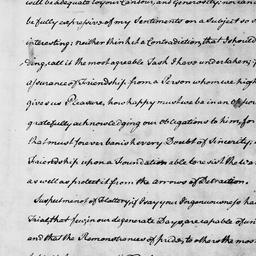 will be adequate to your Candour, and Generosity; nor can
be fully expressive of my Sentiments on a Subject so
interesting; neither think it a Contradiction, that I should
ding, call it the most agreeable Task I have undertaken; f
assurance of Friendship from a Person whom we high
gives us Pleasure, how happy must we be in an oppor
gratefully acknowledging our obligations to him, for
that must forever banish every Doubt of Sincerity,
Friendship upon a Foundation able to resist the
as well as protect it from the arrows of Detraction.
Suspect me not of Flattery, if I say your Ingenuousness has
Trial, that few in our degenerate Days, are capable of
and that the Remonstrances of pride, to others the most